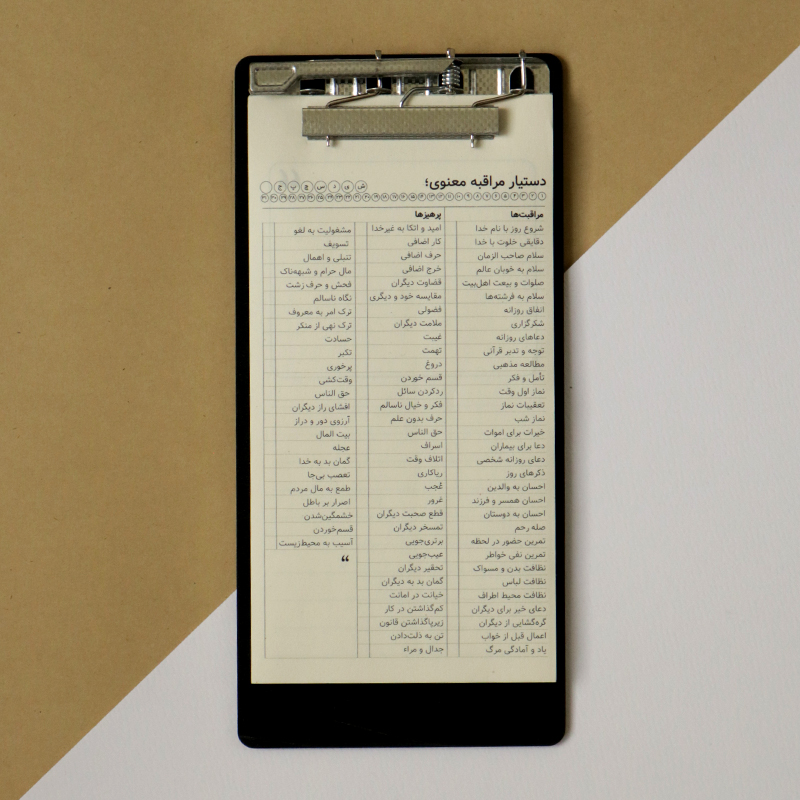 دستیار مراقبه معنوی؛
ش ی د س چ پ ج
۱ ۲ ۳ ۴ ۵ ۶ ۷ ۸ ۹ ۱۰ ۱۱ ۱۲ ۱۳ ۱۴ ۱۵ ۱۶ ۱۷ ۱۸ ۱۹ ۲۰ ۲۱ ۲۲ ۲۳ ۲۴ ۲۵ ۲۶ ۲۷ ۲۸ ۲۹ ۳۰ ۳۱
مراقبت‌ها
شروع روز با نام خدا
دقایقی خلوت با خدا
سلام صاحب الزمان
سلام به خوبان عالم
صلوات و بیعت اهل‌بیت
سلام به فرشته‌ها
انفاق روزانه
شکرگزاری
دعاهای روزانه
توجه و تدبر قرآنی
مطالعه مذهبی
تأمل و فکر
نماز اول وقت
تعقیبات نماز
نماز شب
خیرات برای اموات
دعا برای بیماران
دعای روزانه شخصی
ذکرهای روز
احسان به والدین
احسان همسر و فرزند
احسان به دوستان
صله رحم
تمرین حضور در لحظه
تمرین نفی خواطر
نظافت بدن و مسواک
نظافت لباس
نظافت محیط اطراف
دعای خیر برای دیگران
گره‌گشایی از دیگران
اعمال قبل از خواب
یاد و آمادگی مرگ
پرهیزها
امید و اتکا به غیرخدا
کار اضافی
حرف اضافی
خرج اضافی
قضاوت دیگران
مقایسه خود و دیگری
فضولی
ملامت دیگران
غیبت
تهمت
دروغ
قسم خوردن
ردکردن سائل
فکر و خیال ناسالم
حرف بدون علم
حق الناس
اسراف
اتلاف وقت
ریاکاری
عُجب
غرور
قطع صحبت دیگران
تمسخر دیگران
برتری‌جویی
عیب‌جویی
تحقیر دیگران
گمان بد به دیگران
خیانت در امانت
کم‌گذاشتن در کار
زیرپاگذاشتن قانون
تن به ذلت‌دادن
جدال و مراء
مشغولیت به لغو
تسویف
تنبلی و اهمال
مال حرام و شبهه‌ناک
فحش و حرف زشت
نگاه ناسالم
ترک امر به معروف
ترک نهی از منکر
حسادت
تکبر
پرخوری
وقت‌کشی
حق الناس
افشای راز دیگران
آرزوی دور و دراز
بیت المال
عجله
گمان بد به خدا
تعصب بی‌جا
طمع به مال مردم
اصرار بر باطل
خشمگین‌شدن
قسم‌خوردن
آسیب به محیط‌زیست
“